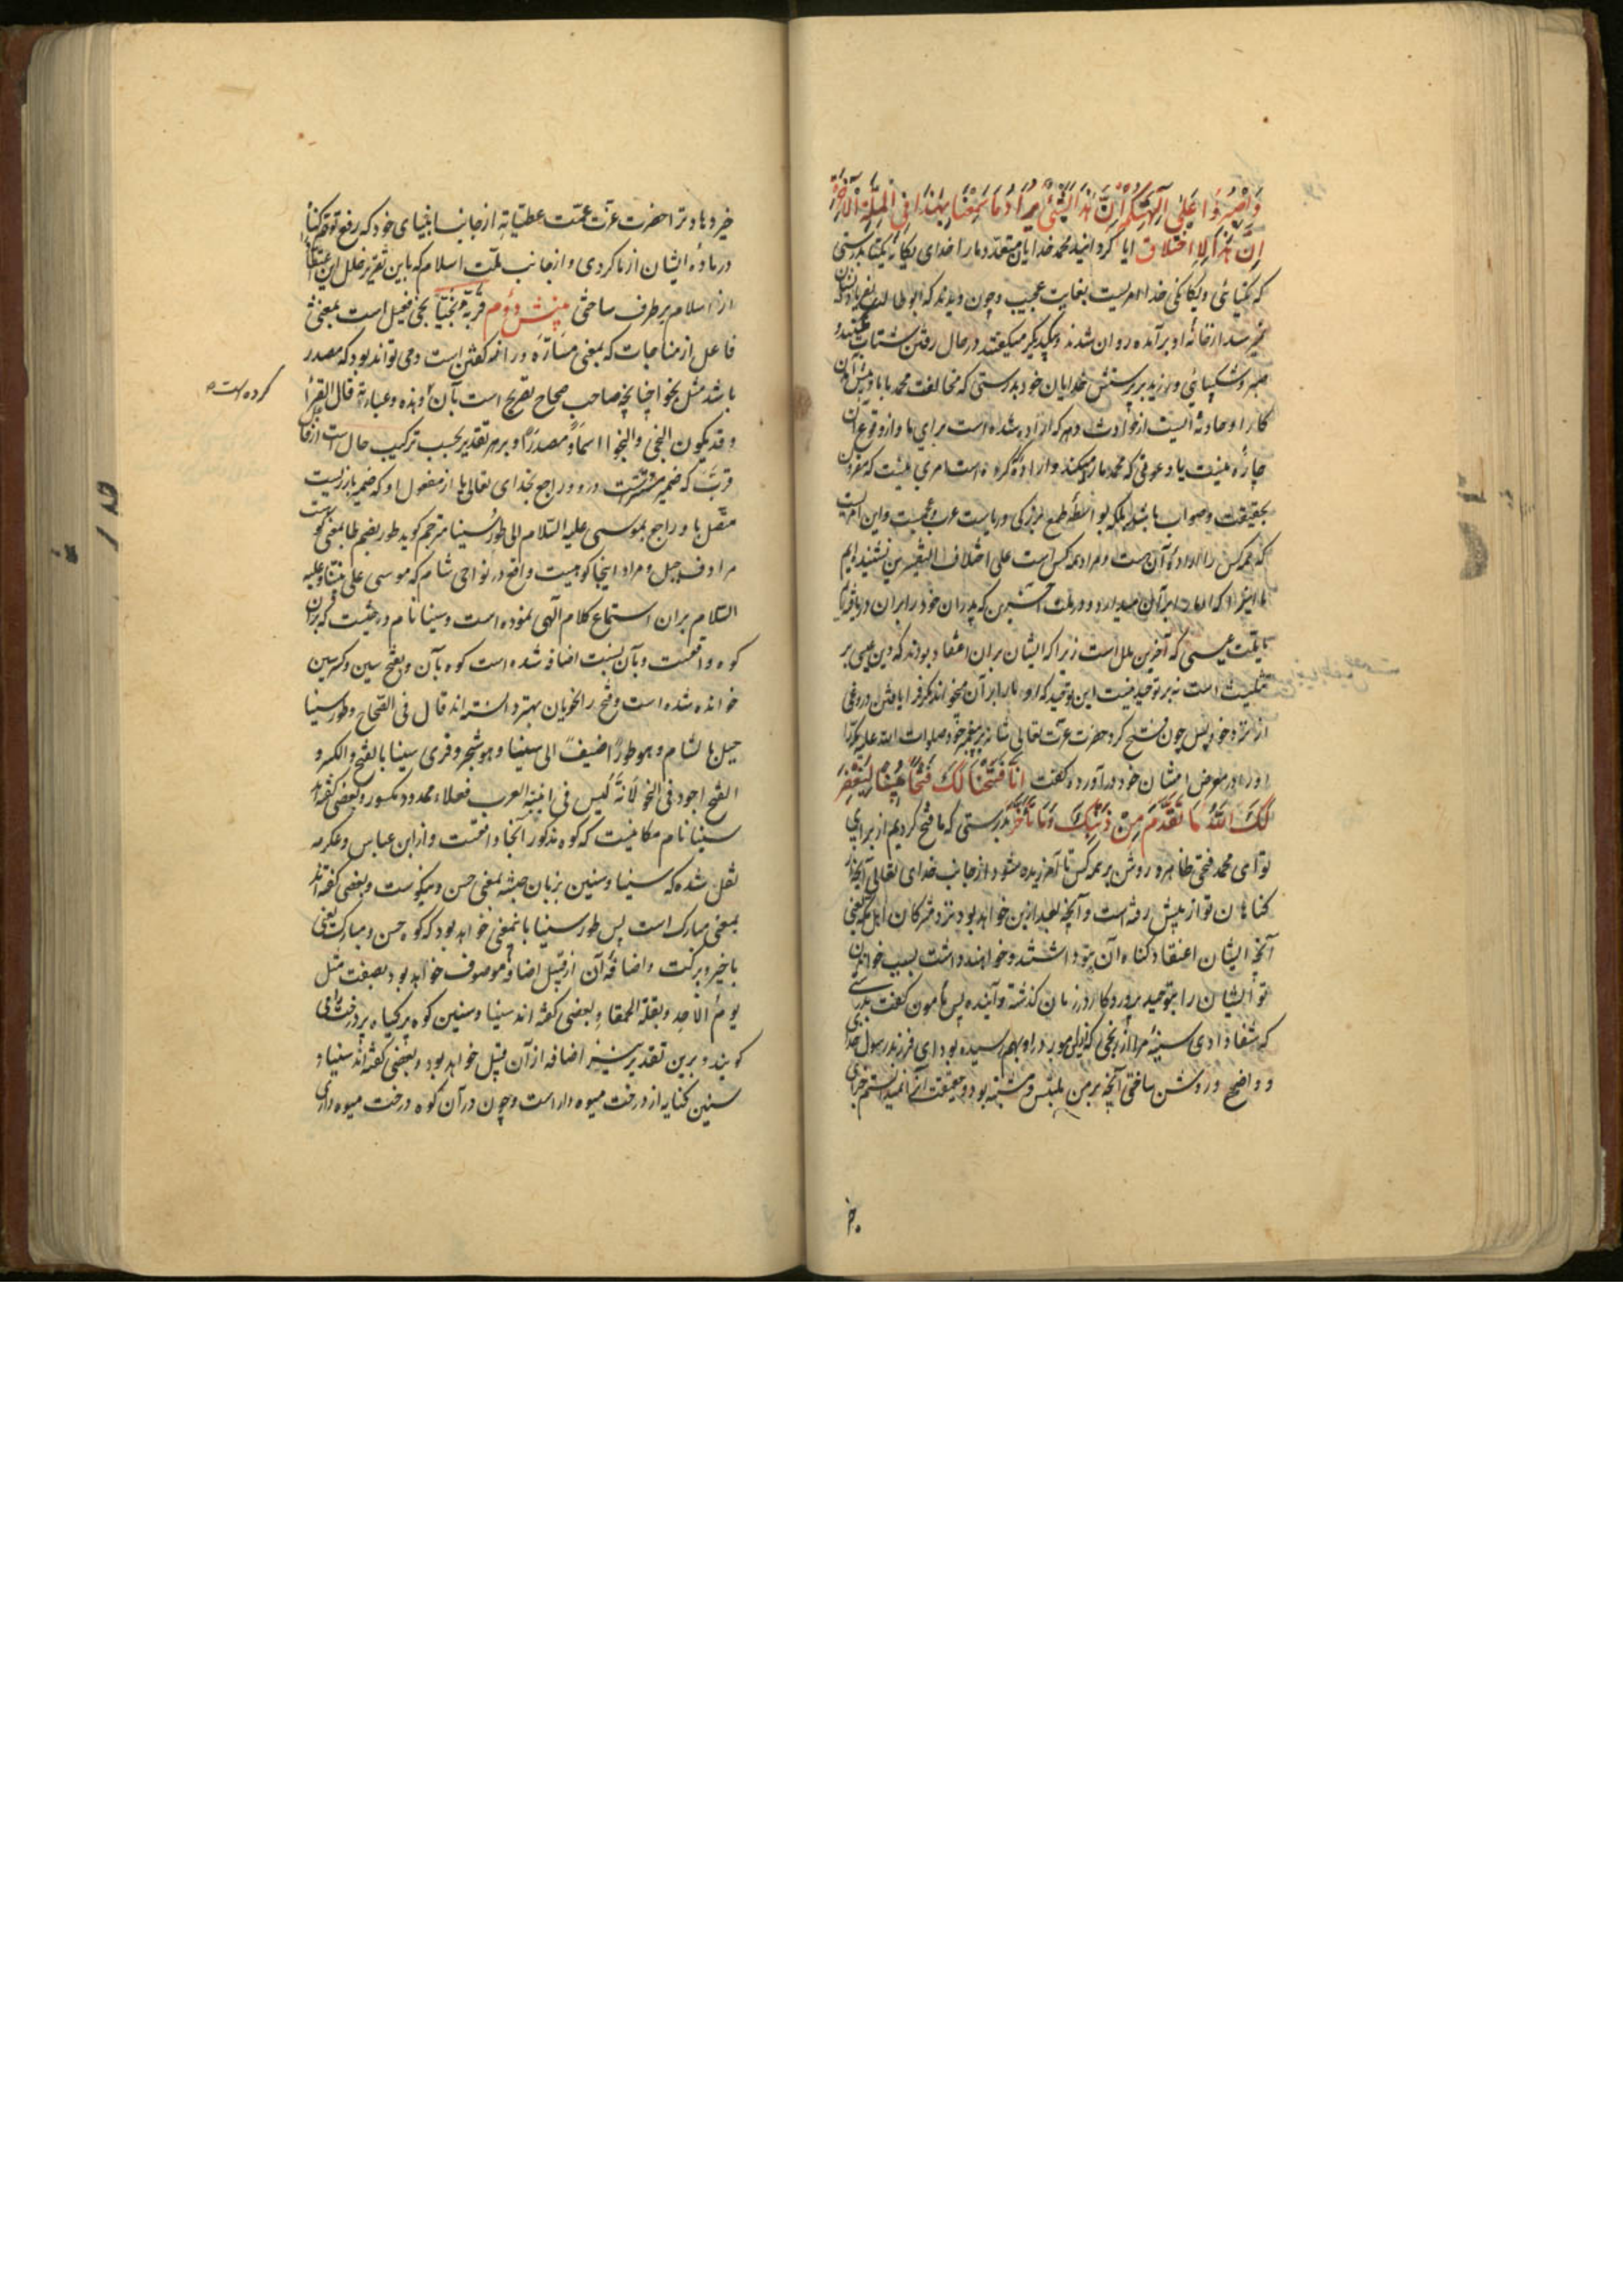 وَاصْبِرُوا عَلَى آلِهَتِكُمْ إِنَّ هَذَا لَشَيْءٌ يُرَادُ مَا سَمِعْنَا بِهَذَا فِي الْمِلَّةِ الْآخِرَةِ
إِنْ هَذَا إِلَّا اخْتِلَاقٌ ایا کردانید محمد خدایان متعدد مارا خدای یکانه یکتا بدرستی
که یکتایی ویکانکی خدا امریست بغایت عجیب وچون دیدند که ابو طالب
از خانه او برآمده روان شدند و بیکدیکر میکفتند در حال رفتن شتاب
صبر وشکیبایی ورزید بر پرستش خدایان خود بدرستی که مخالفت محمد باما
کار او حادثه ایست از حوادث دهر که اراده شده است برای ما واز وقوع آن
چاره نیست یا دعوی که محمد میکند واراده کرده است امری نیست که مقرون
بحقیقت وصواب باشد بلکه بواسطه طمع بزرکی وریاست عرب وعجم است واین امریست
که همه کس را اراده آن هست ومراد همه کس است علی اختلاف التفسیرین نشنیده ایم
ما اینرا که در ملت آخرین که پدران خود را بران دریافته ایم
یا ملت عیسی که آخرین ملل است زیرا که ایشان بران اعتقاد بودند که دین عیسی بر
تثلیث است نه بر توحید نیست این توحید که او مارا بر آن میخواند مکر افرا یافتن دروغی
از نزد خود پس چون فتح کرد حضرت عزت تعالی شانه بر پیغمبر خود صلوات الله علیه مکه را
اورا در معرض امتنان خود درآورد وکفت إِنَّا فَتَحْنَا لَكَ فَتْحًا مُبِينًا لِيَغْفِرَ
لَكَ اللَّهُ مَا تَقَدَّمَ مِنْ ذَنْبِكَ وَمَا تَأَخَّرَ بدرستی که ما فتح کردیم از برای
تو ای محمد فتحی ظاهر و روشن بر همه کس تا آمرزیده شود از جانب خدای تعالی آنچه از
کناهان تو از پیش رفته است وآنچه بعد ازین خواهد بود نزد مشرکان اهل مکه یعنی
آنچه ایشان اعتقاد کناه آن بتو داشتند وخواهند داشت بسبب خواندن
تو ایشان را بتوحید پروردکار در زمان کذشته وآینده پس مأمون کفت بدرستی
که شفا دادی سینه مرا از رنجی که بدو راه بهم رسیده بود ای فرزند رسول خدا
و واضح و روشن ساختی آنچه بر من ملتبس ومشتبه بود وحقیقت آنرا نمیدانستم جزای
خیر دهاد ترا حضرت عزت عمت عطیاته از جانب انبیای خود که رفع توهم کناه
در ماده ایشان از ما کردی واز جانب ملت اسلام که باین تقریر خلل این اعتقاد
از اسلام برطرف ساختی مپنش دوم قَرَّبَهُ نَجِيًّا نجی فعیل است بمعنی
فاعل از مناجات که بمعنی مسارّه و راز کفتن است ومی تواند بود که مصدر
باشد مثل نجوا چنانچه صاحب صحاح تصریح است بآن وهذه عبارته قال الفراء
کرده است
وقد یکون النجی والنجوا اسما ومصدرا وبر هر تقدیر بحسب ترکیب حال است از فاعل
قرّب که ضمیر مستتر است درو وراجع بخدای تعالی یا از مفعول او که ضمیر بارزیست
متصل باو راجع بموسی علیه السلام الی طور سینا مترجم کوید طور بضم طا بمعنی کوه است
مرادف جبل ومراد اینجا کوهیست واقع در نواحی شام که موسی علی نبینا وعلیه
السلام بران استماع کلام الهی نموده است وسینا نام درختیست که بران
کوه واقعست وبآن نسبت اضافه شده است کوه بآن وبفتح سین وکسر سین
خوانده شده است وفتح را نحویان بهتر دانسته اند قال فی الصحاح وطور سینا
جبل بالشام وهو طور اضیف الی سینا وهو شجر وقری سینا بالفتح والکسر و
الفتح اجود فی النحو لانه لیس فی ابنیة العرب فعلاء ممدود مکسور وبعضی کفته اند
سینا نام مکانیست که کوه مذکور آنجا واقعست واز ابن عباس وعکرمه
نقل شده که سینا وسینین بزبان حبشه بمعنی حسن ونیکوست وبعضی کفته اند
بمعنی مبارک است پس طور سینا باینمعنی خواهد بود که کوه حسن ومبارک یعنی
باخیر وبرکت واضافه آن از قبیل اضافه موصوف خواهد بود بصفت مثل
یوم الاحد وبقلة الحمقا وبعضی کفته اند سینا وسینین کوه پر کیاه پر درخت را می
کویند وبرین تقدیر نیز اضافه از آن قبیل خواهد بود وبعضی کفته اند سینا و
سینین کنایه از درخت میوه دار است وچون در آن کوه درخت میوه داری